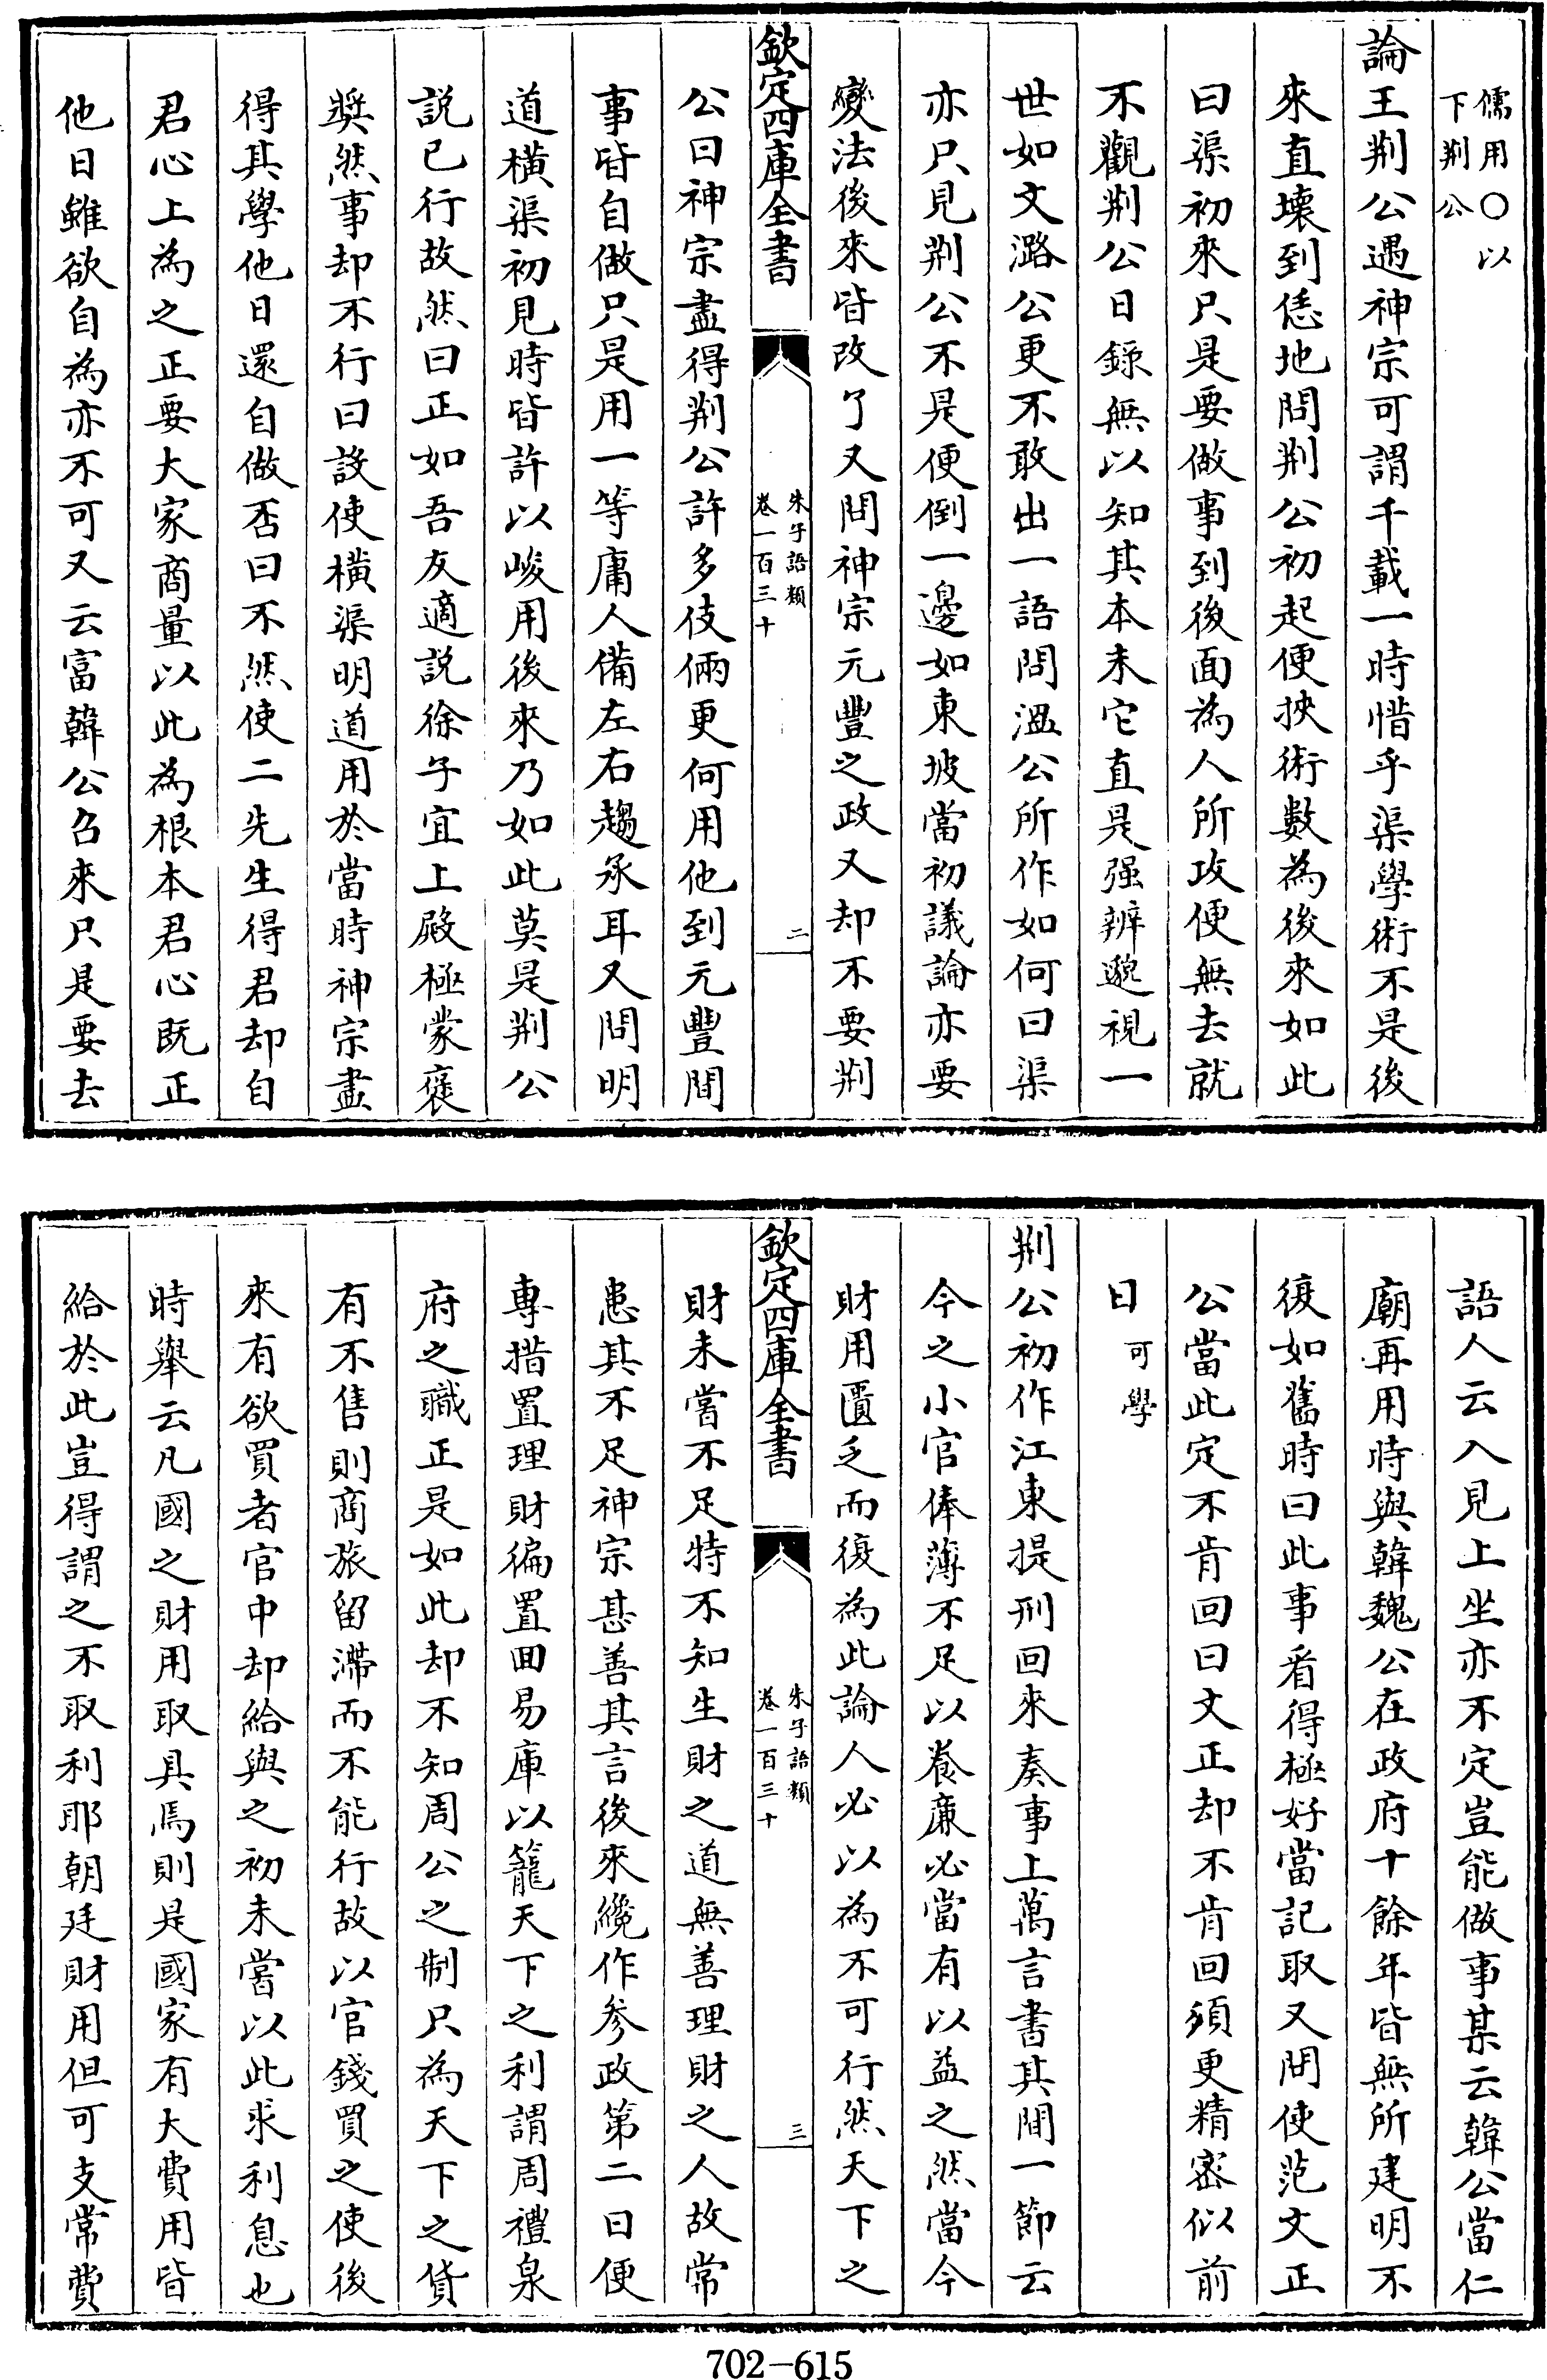 儒用〇以
下荆公
論王荆公遇神宗可謂千載一時惜乎渠學術不是後
來直壊到恁地問荆公初起便挾術數為後來如此
曰渠初來只是要做事到後面為人所攻便無去就
不觀荆公日錄無以知其本末它直是强辨邈視一
世如文潞公更不敢出一語問溫公所作如何曰渠
亦只見荆公不是便倒一邊如東坡當初議論亦要
變法後來皆改了又問神宗元豐之政又却不要荆
欽定四庫全書
朱子語類
卷一百三十
二
公曰神宗盡得荆公許多伎倆更何用他到元豐間
事皆自做只是用一等庸人備左右趨承耳又問明
道横渠初見時皆許以峻用後來乃如此莫是荆公
説已行故然曰正如吾友適説徐子宜上殿極蒙褒
奬然事却不行曰設使横渠明道用於當時神宗盡
得其學他日還自做否曰不然使二先生得君却自
君心上為之正要大家商量以此為根本君心既正
他日雖欲自為亦不可又云富韓公召來只是要去
語人云入見上坐亦不定豈能做事某云韓公當仁
廟再用時與韓魏公在政府十餘年皆無所建明不
復如舊時曰此事看得極好當記取又問使范文正
公當此定不肯回曰文正却不肯回須更精密似前
日可學
荆公初作江東提刑回來奏事上萬言書其間一節云
今之小官俸薄不足以養廉必當有以益之然當今
財用匱乏而復為此論人必以為不可行然天下之
欽定四庫全書
朱子語類
卷一百三十
三
財未嘗不足特不知生財之道無善理財之人故常
患其不足神宗甚善其言後來纔作參政第二日便
專措置理財徧置回易庫以籠天下之利謂周禮泉
府之職正是如此却不知周公之制只為天下之貨
有不售則商旅留滯而不能行故以官錢買之使後
來有欲買者官中却給與之初未嘗以此求利息也
時舉云凡國之財用取具焉則是國家有大費用皆
給於此豈得謂之不取利耶曰朝廷財用但可支常費
702-615